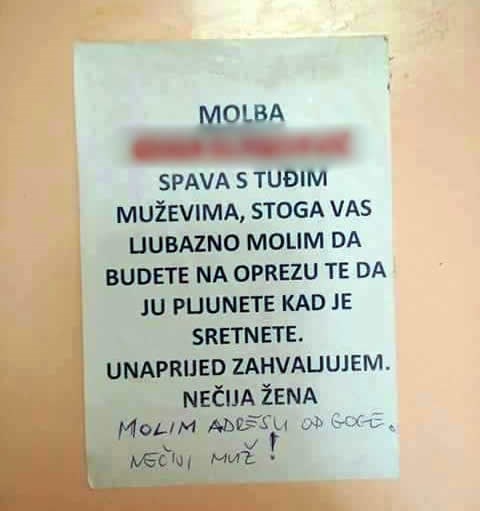 MOLBA
SPAVA S TUĐIM
MUŽEVIMA, STOGA VAS
LJUBAZNO MOLIM DA
BUDETE NA OPREZU TE DA
JU PLJUNETE KAD JE
SRETNETE.
UNAPRIJED ZAHVALJUJEM.
NEČIJA ŽENA
MOLIM ADRESU OD GOGE.
NEČIJI MUŽ!